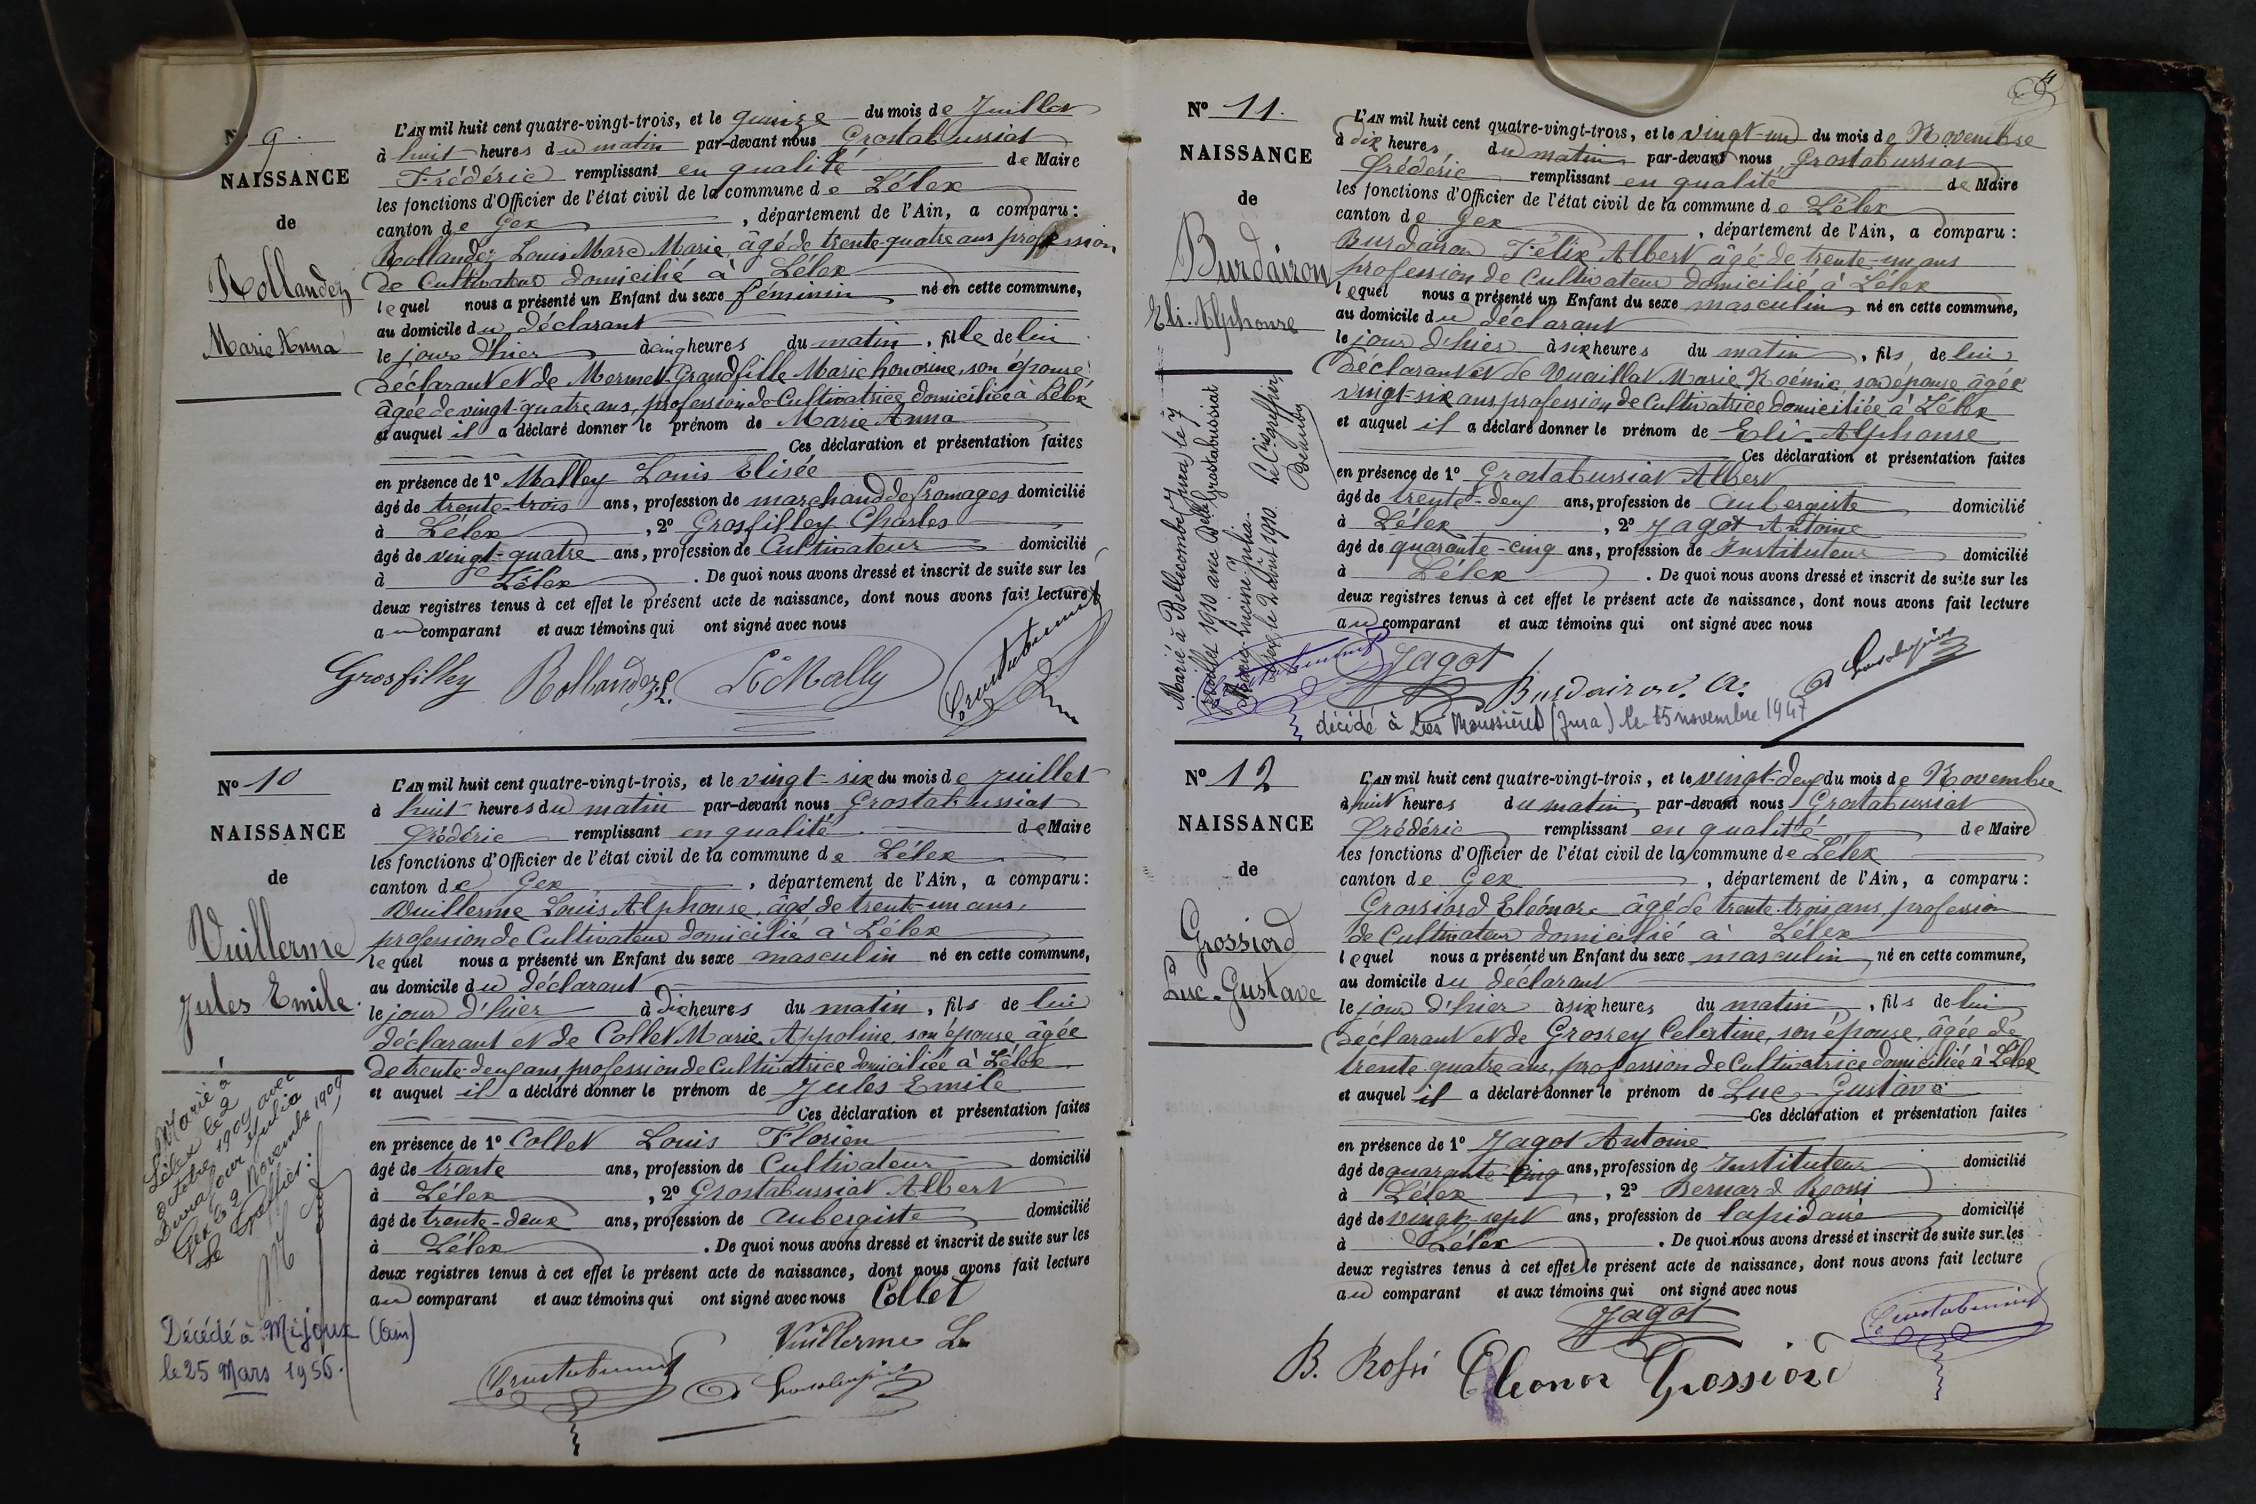 Nº 9
NAISSANCE
de
Rollandez
Marie Anna
L'AN mil huit cent quatre-vingt-trois, et le quinze du mois de Juillet
à huit heures du matin par-devant nous Grostabussiat
Frédéric remplissant en qualité de Maire
les fonctions d'Officier de l'état civil de la commune de Lélex
canton de Gex, département de l'Ain, a comparu :
Rollandez Louis Marc Marie, âgé de trente-quatre ans profession
de Cultivateur domicilié à Lélex
lequel nous a présenté un Enfant du sexe féminin né en cette commune,
au domicile du déclarant
le jour d'hier à cinq heures du matin, fille de lui
déclarant et de Mermet-Grandfille Marie honorine, son épouse
âgée de vingt-quatre ans, profession de Cultivatrice domiciliée à Lélex
et auquel il a déclaré donner le prénom de Marie Anna
Ces déclaration et présentation faites
en présence de 1º Malley Louis Elisée
âgé de trente-trois ans, profession de marchand de fromages domicilié
à Lélex, 2º Grosfilley Charles
âgé de vingt-quatre ans, profession de Cultivateur domicilié
à Lélex. De quoi nous avons dressé et inscrit de suite sur les
deux registres tenus à cet effet le présent acte de naissance, dont nous avons fait lecture
au comparant et aux témoins qui ont signé avec nous
Grosfilley Rollandez L. Malley
Nº 10
NAISSANCE
de
Vuillerme
Jules Emile
L'AN mil huit cent quatre-vingt-trois, et le vingt-six du mois de juillet
à huit heures du matin par-devant nous Grostabussiat
Frédéric remplissant en qualité de Maire
les fonctions d'Officier de l'état civil de la commune de Lélex
canton de Gex, département de l'Ain, a comparu :
Vuillerme Louis Alphonse, âgé de trente-un ans,
profession de Cultivateur domicilié à Lélex
lequel nous a présenté un Enfant du sexe masculin né en cette commune,
au domicile du déclarant
le jour d'hier à dix heures du matin, fils de lui
déclarant et de Collet Marie Appoline, son épouse âgée
de trente-deux ans profession de Cultivatrice domiciliée à Lélex
et auquel il a déclaré donner le prénom de Jules Emile
Ces déclaration et présentation faites
en présence de 1º Collet Louis Florien
âgé de trente ans, profession de Cultivateur domicilié
à Lélex, 2º Grostabussiat Albert
âgé de trente-deux ans, profession de aubergiste domicilié
à Lélex. De quoi nous avons dressé et inscrit de suite sur les
deux registres tenus à cet effet le présent acte de naissance, dont nous avons fait lecture
au comparant et aux témoins qui ont signé avec nous Collet
Vuillerme L.
Marié à
Lélex le 2
octobre 1909 avec
Julia
Gex le 2 Novembre 1909
Le Greffier :
Décédé à Mijoux (Ain)
le 25 Mars 1956.
Nº 11.
NAISSANCE
de
Burdairon
Eli-Alphonse
L'AN mil huit cent quatre-vingt-trois, et le vingt-un du mois de Novembre
à dix heures du matin par-devant nous Grostabussiat
Frédéric remplissant en qualité de Maire
les fonctions d'Officier de l'état civil de la commune de Lélex
canton de Gex, département de l'Ain, a comparu :
Burdairon Félix Albert âgé de trente-un ans
profession de cultivateur domicilié à Lélex
lequel nous a présenté un Enfant du sexe masculin né en cette commune,
au domicile du déclarant
le jour d'hier à six heures du matin, fils de lui
déclarant et de Vuaillat Marie Noémie, son épouse, âgée
vingt-six ans profession de Cultivatrice domiciliée à Lélex
et auquel il a déclaré donner le prénom de Eli-Alphonse
Ces déclaration et présentation faites
en présence de 1º Grostabussiat Albert
âgé de trente-deux ans, profession de Aubergiste domicilié
à Lélex, 2º Jagot Antoine
âgé de quarante-cinq ans, profession de Instituteur domicilié
à Lélex. De quoi nous avons dressé et inscrit de suite sur les
deux registres tenus à cet effet le présent acte de naissance, dont nous avons fait lecture
au comparant et aux témoins qui ont signé avec nous
Marié à Bellecombe (Jura) le 7
juillet 1910 avec Delle Grostabussiat
Marie Julia.
Gex, le 2 août 1910. Le Cis greffier
Jagot
Burdairon. A.
décédé à Les Moussières (Jura) le 15 novembre 1947
Nº 12
NAISSANCE
de
Grossiord
Luc-Gustave
L'AN mil huit cent quatre-vingt-trois, et le vingt-deux du mois de Novembre
à huit heures du matin, par-devant nous Grostabussiat
Frédéric remplissant en qualité de Maire
les fonctions d'Officier de l'état civil de la commune de Lélex
canton de Gex, département de l'Ain, a comparu :
Grossiord Eléonor âgé de trente-trois ans, profession
de Cultivateur domicilié à Lélex
lequel nous a présenté un Enfant du sexe masculin né en cette commune,
au domicile du déclarant
le jour d'hier à six heures du matin, fils de lui
déclarant et de Grosrey Celestine, son épouse, âgée de
trente-quatre ans, profession de Cultivatrice domiciliée à Lélex
et auquel il a déclaré donner le prénom de Luc-Gustave
Ces déclaration et présentation faites
en présence de 1º Jagot Antoine
âgé de quarante-cinq ans, profession de Instituteur domicilié
à Lélex, 2º Bernard Rossi
âgé de vingt-sept ans, profession de lapidaire domicilié
à Lélex. De quoi nous avons dressé et inscrit de suite sur les
deux registres tenus à cet effet le présent acte de naissance, dont nous avons fait lecture
au comparant et aux témoins qui ont signé avec nous
Jagot
B. Rossi Eleonor Grossiord